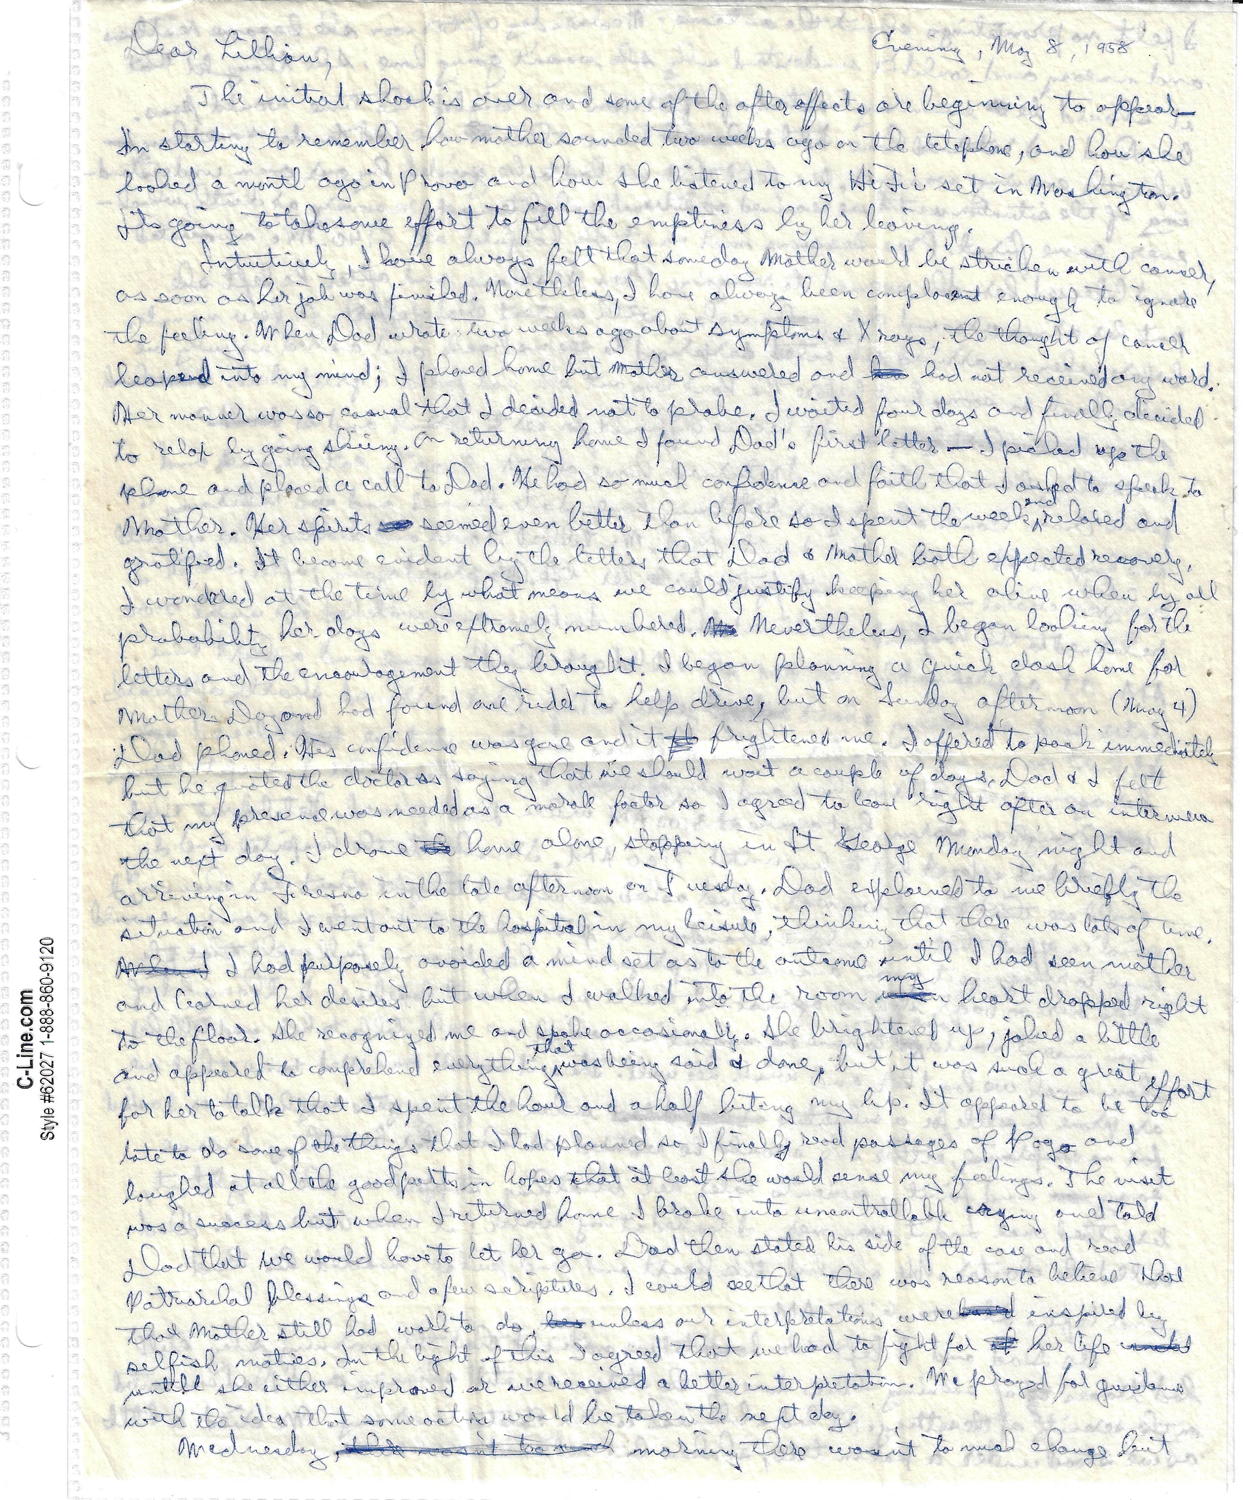 Evening, May 8, 1958
Dear Lillian,
The initial shock is over and some of the after effects are beginning to appear—
I'm starting to remember how mother sounded two weeks ago on the telephone, and how she
looked a month ago in Provo and how she listened to my Hi Fi set in Washington.
It's going to take some effort to fill the emptiness by her leaving.
Intuitively, I have always felt that someday Mother would be stricken with cancer,
as soon as her job was finished. Nonetheless, I have always been complacent enough to ignore
the feeling. When Dad wrote two weeks ago about symptoms & X rays, the thought of cancer
leaped into my mind; I phoned home but Mother answered and had not received any word.
Her manner was so casual that I decided not to probe. I waited four days and finally decided
to relax by going skiing. On returning home I found Dad's first letter — I picked up the
phone and placed a call to Dad. He had so much confidence and faith that I asked to speak to
Mother. Her spirits seemed even better than before so I spent the weekend relaxed and
gratified. It became evident by the letters that Dad & Mother both expected recovery.
I wondered at the time by what means we could justify keeping her alive when by all
probability her days were extremely numbered. Nevertheless, I began looking for the
letters and the encouragement they brought. I began planning a quick dash home for
Mothers Day and had found one rider to help drive, but on Sunday afternoon (May 4)
Dad phoned. His confidence was gone and it frightened me. I offered to pack immediately
but he quoted the doctor as saying that we should wait a couple of days. Dad & I felt
that my presence was needed as a morale factor so I agreed to leave right after an interview
the next day. I drove home alone, stopping in St George Monday night and
arriving in Fresno in the late afternoon on Tuesday. Dad explained to me briefly the
situation and I went out to the hospital in my leisure, thinking that there was lots of time.
I had purposely avoided a mind set as to the outcome until I had seen mother
and learned her desires but when I walked into the room my heart dropped right
to the floor. She recognized me and spoke occasionally. She brightened up, joked a little
and appeared to comprehend everything that was being said & done, but it was such a great effort
for her to talk that I spent the hour and a half biting my lip. It appeared to be too
late to do some of the things that I had planned so I finally read passages of Pogo and
laughed at all the good parts in hopes that at least she would sense my feelings. The visit
was a success but when I returned home I broke into uncontrollable crying and told
Dad that we would have to let her go. Dad then stated his side of the case and read
Patriarchal blessings and a few scriptures. I could see that there was reason to believe that
that Mother still had work to do, unless our interpretations were inspired by
selfish motives. In the light of this I agreed that we had to fight for her life
until she either improved or we received a better interpretation. We prayed for guidance
with the idea that some action would be taken the next day.
Wednesday, morning there wasn't to much change but
C-Line.com
Style #62027 1-888-860-9120